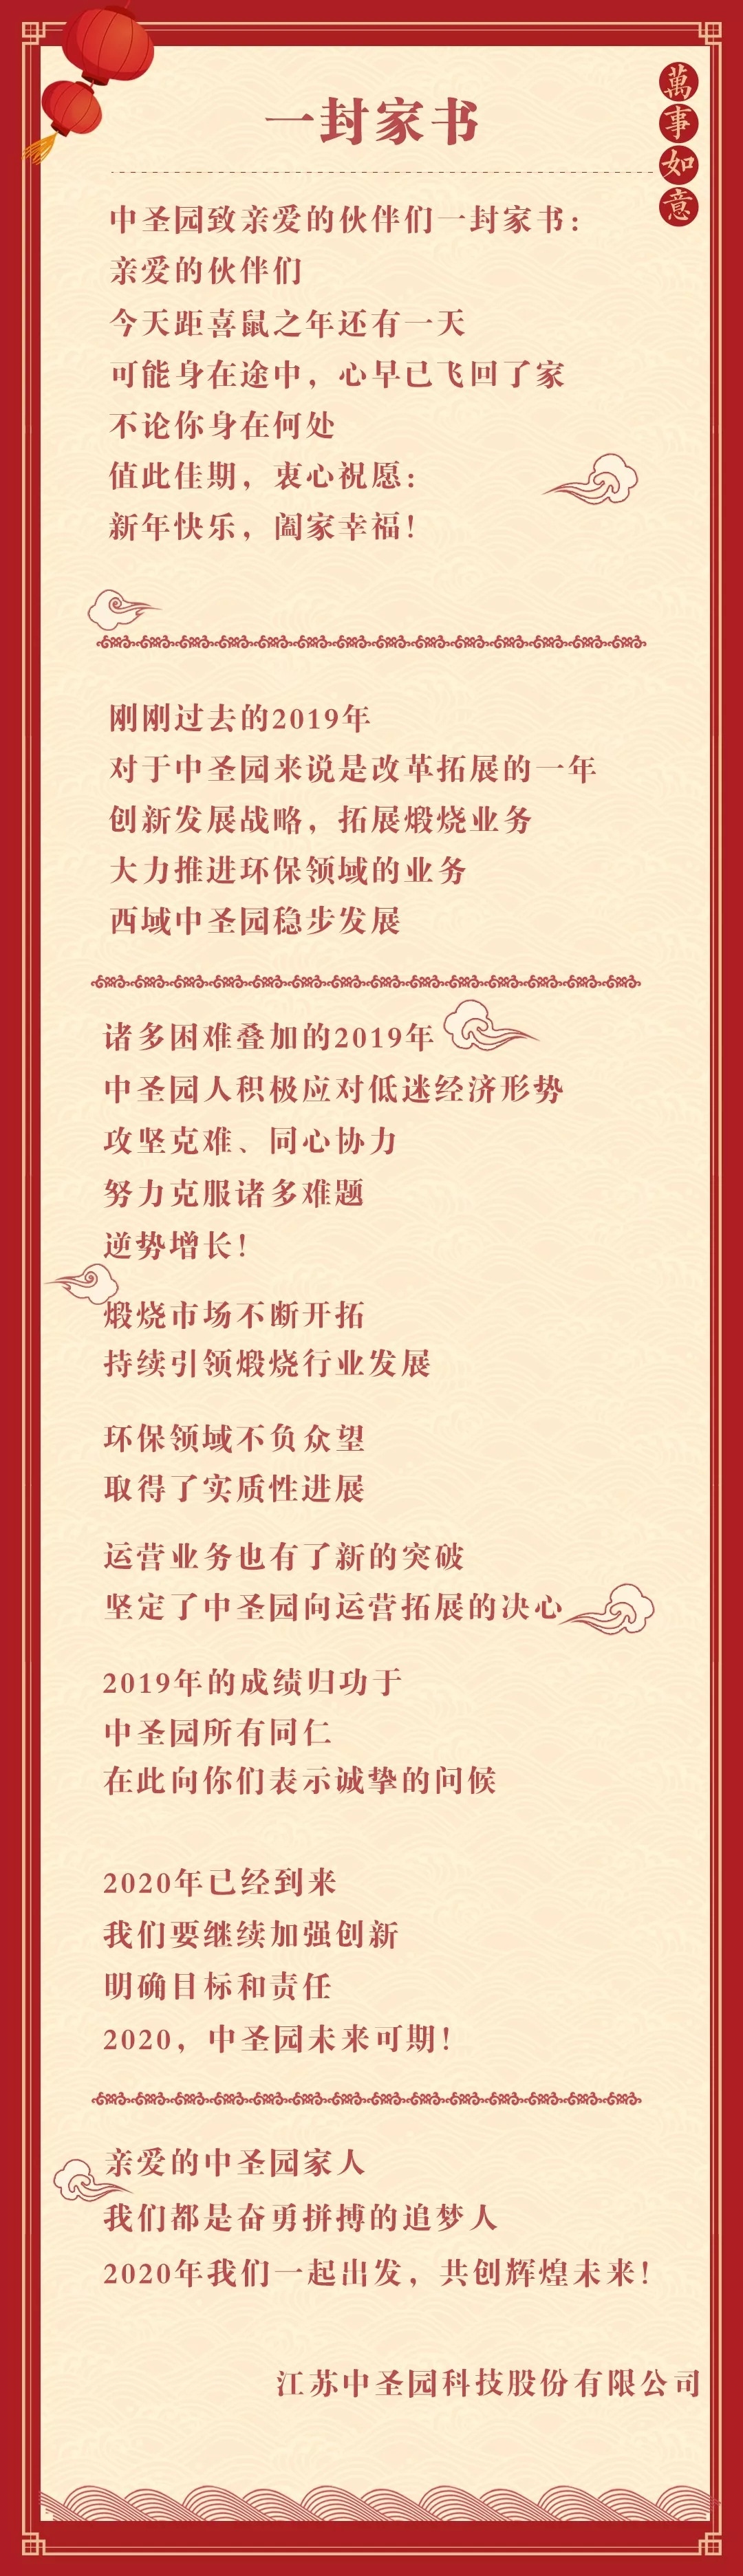 一封家书
萬事如意
中圣园致亲爱的伙伴们一封家书：
亲爱的伙伴们
今天距喜鼠之年还有一天
可能身在途中，心早已飞回了家
不论你身在何处
值此佳期，衷心祝愿：
新年快乐，阖家幸福！
刚刚过去的2019年
对于中圣园来说是改革拓展的一年
创新发展战略，拓展煅烧业务
大力推进环保领域的业务
西域中圣园稳步发展
诸多困难叠加的2019年
中圣园人积极应对低迷经济形势
攻坚克难、同心协力
努力克服诸多难题
逆势增长！
煅烧市场不断开拓
持续引领煅烧行业发展
环保领域不负众望
取得了实质性进展
运营业务也有了新的突破
坚定了中圣园向运营拓展的决心
2019年的成绩归功于
中圣园所有同仁
在此向你们表示诚挚的问候
2020年已经到来
我们要继续加强创新
明确目标和责任
2020，中圣园未来可期！
亲爱的中圣园家人
我们都是奋勇拼搏的追梦人
2020年我们一起出发，共创辉煌未来！
江苏中圣园科技股份有限公司